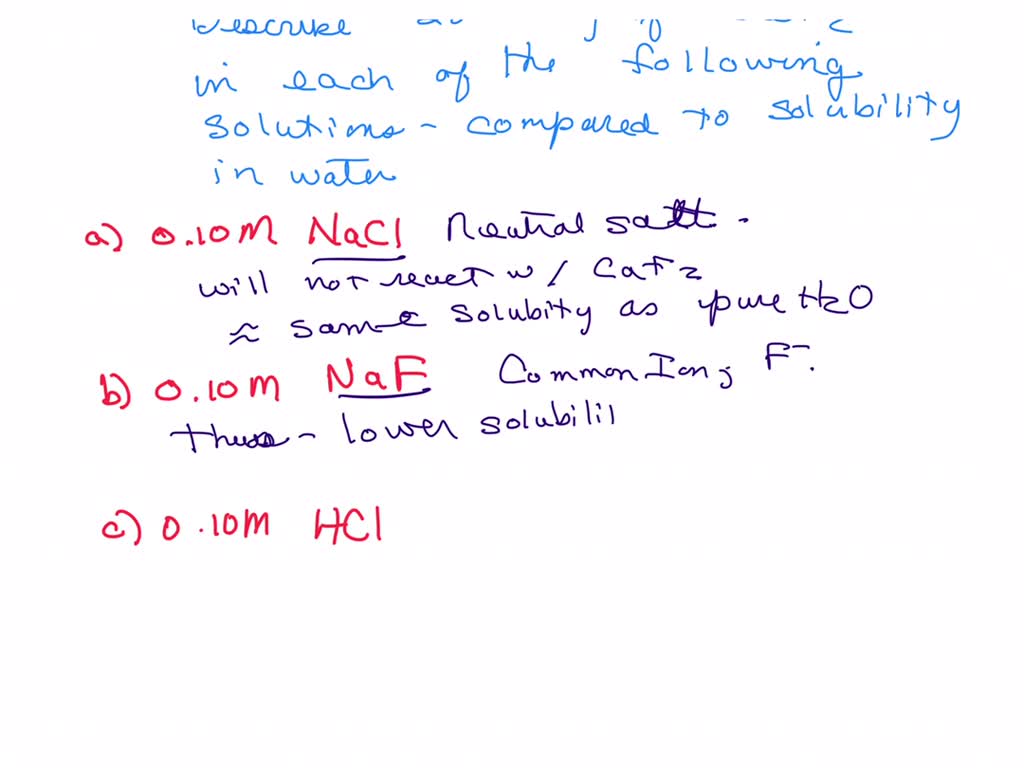 Describe
in each of the following
solutions - compared to solubility
in water
a) 0.10M NaCl Neutral salt -
will not react w/ CaF2
≈ same solubity as pure H2O
b) 0.10M NaF Common Ion; F⁻.
thus - lower solubilil
c) 0.10M HCl